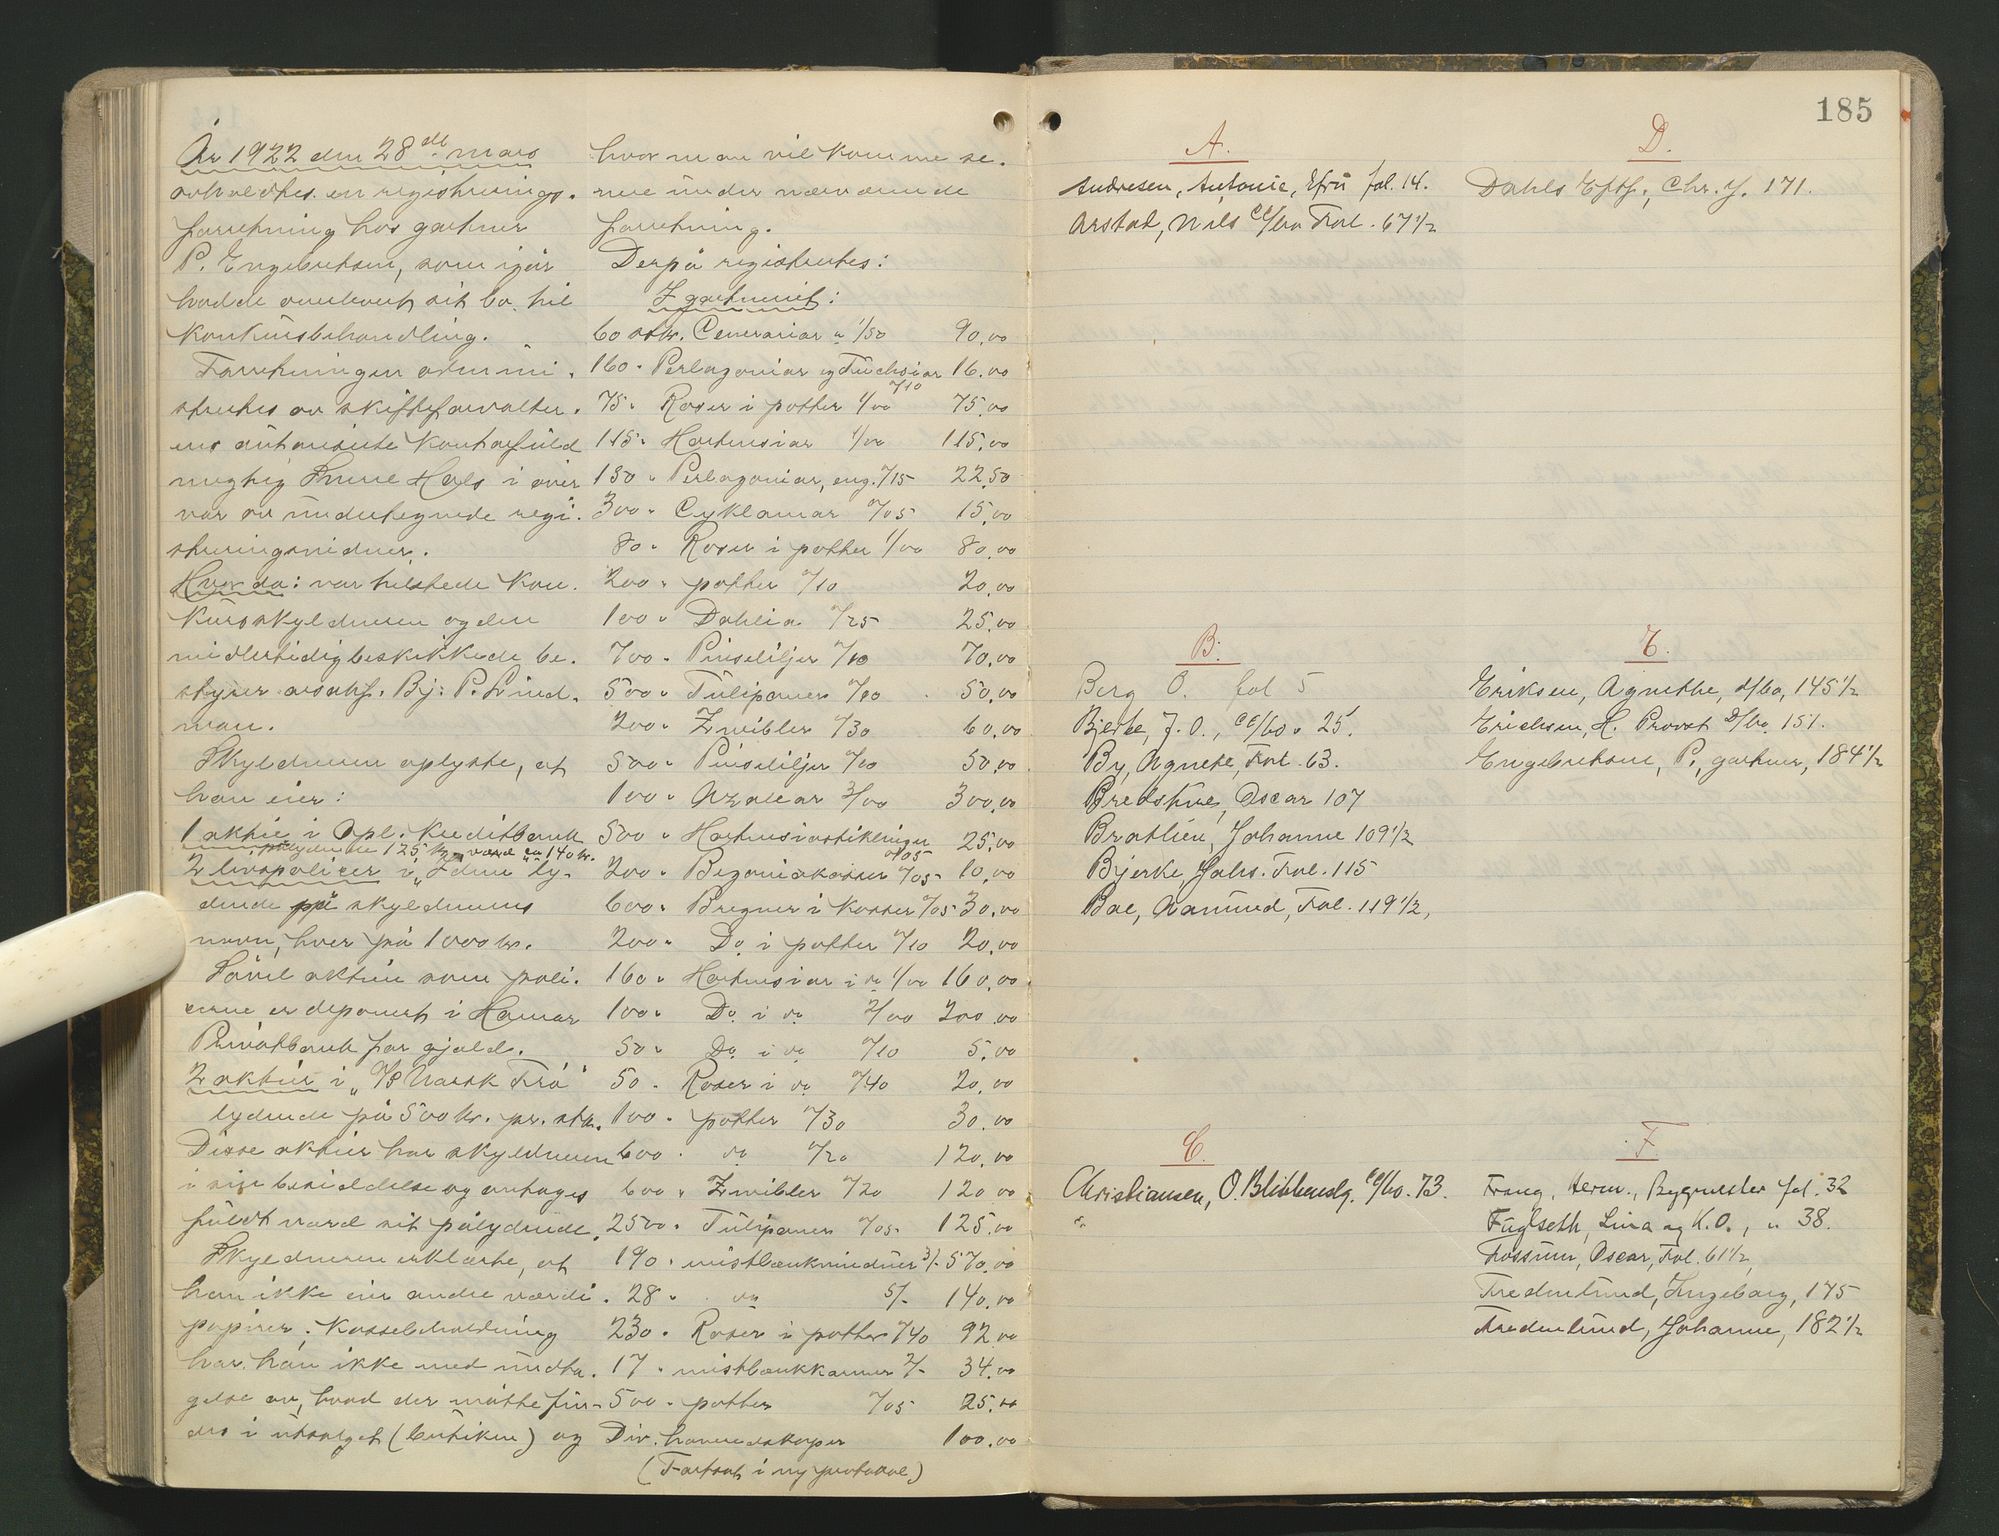 År 1922 den 28de mars
avholdtes en registrerings-
forretning hos gartner
P. Engebretsen, som igår
hadde overlevert sit bo til
konkursbehandling.
Forretningen admini-
strertes av skifteforvalter-
ens autoriserte kontorfuld-
mægtig Frue Hals i over-
vær av undertegnede regi-
streringsvidner.
Hvorda: var tilstede kon-
kursskyldneren og den
midlertidig beskikkede be-
styrer oragf. Bj: P. Lind-
man.
Skyldneren oplyste, at
han eier:
1 aktie i Opl. Kreditbank
pålydende 125 kr, værd ca 140 kr.
2 livspolicer i "Idun" ly-
dende på skyldnerens
navn, hver på 1000 kr.
Såvel aktien som poli-
cerne er deponert i Hamar
Privatbank for gjæld.
2 aktier i "A/S Norsk Frø"
lydende på 500 kr. pr. stk.
Disse aktier har skyldneren
i sin besiddelse og antages
fuldt værd sit pålydende.
Skyldneren erklærte, at
han ikke eier andre værdi-
papirer. Kassebeholdning
har han ikke med undta-
gelse av, hvad der måtte fin-
des i utsalget (butiken) og
hvor man vil komme se-
nere under nærværende
forretning.
Derpå registrertes:
I gartneriet:
60 stk. Cenerariar a 1/50 90,00
160 " Perlagoniar og Fuchsiar 0/10 16,00
75 " Roser i potter 1/00 75,00
115 " Hortensiar 1/00 115,00
150 " Perlagoniar, eng. 0/15 22,50
300 " Cyklamar 0/05 15,00
80 " Roser i potter 1/00 80,00
200 " potter 0/10 20,00
100 " Dahlia 0/25 25,00
700 " Pinseliljer 0/10 70,00
500 " Tulipaner 0/10 50,00
200 " Zwibler 0/30 60,00
500 " Pinseliljer 0/10 50,00
100 " Azalear 3/00 300,00
500 " Hortensiastiklinger 0/05 25,00
200 " Begoniakasser 0/05 10,00
600 " Bregner i kasser 0/05 30,00
200 " Do i potter 0/10 20,00
160 " Hortensiar i do 1/00 160,00
100 " Do i do 2/00 200,00
50 " Do i do 0/10 5,00
50 " Roser i do 0/40 20,00
100 " potter 0/30 30,00
600 " do 0/20 120,00
600 " Zwibler 0/20 120,00
2500 " Tulipaner 0/05 125,00
190 " mistbænkvinduer 3/- 570,00
28 " do 5/- 140,00
230 " Roser i potter 0/40 92,00
17 " mistbænkkarmer 2/- 34,00
500 " potter 0/05 25,00
Div. haveredskaper 100,00
(Fortsat i ny protokol)
185
A.
Andresen, Antonie, Efru fol. 14.
Arstad, Nils cc/bo Fol. 67½
B.
Berg O. fol 5
Bjerke, J. O., cc/bo " 25.
By, Agnete, Fol. 63.
Bredstue, Oscar 107
Bratlien, Johanne 109½
Bjerke, Johs. Fol. 115
Boe, Aamund, Fol. 119½,
C.
Christiansen, O. Blikkenslg. cc/bo. 73.
D.
Dahls Eftf., Chr. J. 171.
E.
Eriksen, Agnethe, d/bo, 145½
Erichsen, H. Provst d/bo. 151.
Engebretsen, P., gartner, 184½
F
Frang, Herm., Bygmester fol. 32
Fuglseth, Lina og K. O., " 38.
Fossum, Oscar, Fol. 61½,
Fredenlund, Ingeborg, 175
Fredenlund, Johanne, 182½